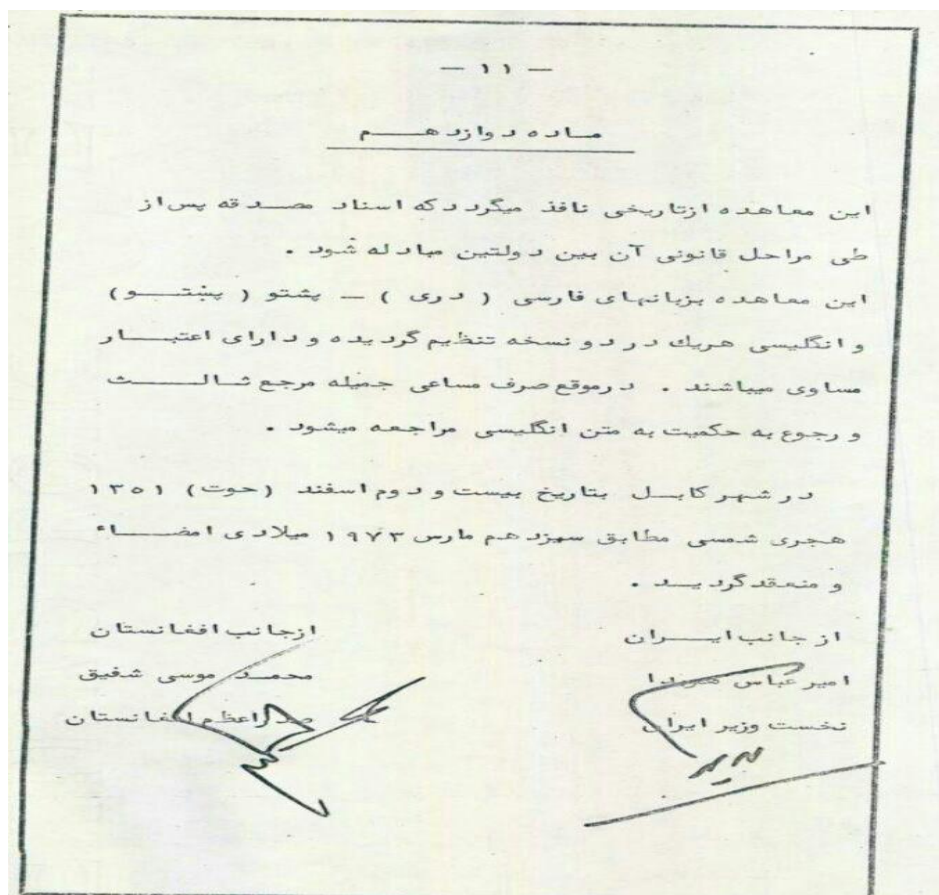 - ۱۱ -
ماده دوازدهم
این معاهده ازتاریخی نافذ میگردد که اسناد مصدقه پس از
طی مراحل قانونی آن بین دولتین مبادله شود .
این معاهده بزبانهای فارسی ( دری ) - پشتو ( پښتو )
و انگلیسی هریك در دو نسخه تنظیم گردیده و دارای اعتبار
مساوی میباشند . درموقع صرف مساعی جمیله مرجع ثالث
و رجوع به حکمیت به متن انگلیسی مراجعه میشود .
در شهر کابل بتاریخ بیست و دوم اسفند (حوت) ۱۳۵۱
هجری شمسی مطابق سیزدهم مارس ۱۹۷۳ میلادی امضاء
و منعقد گردید .
از جانب ایران
امیر عباس هویدا
نخست وزیر ایران
ازجانب افغانستان
محمد موسی شفیق
صدراعظم افغانستان